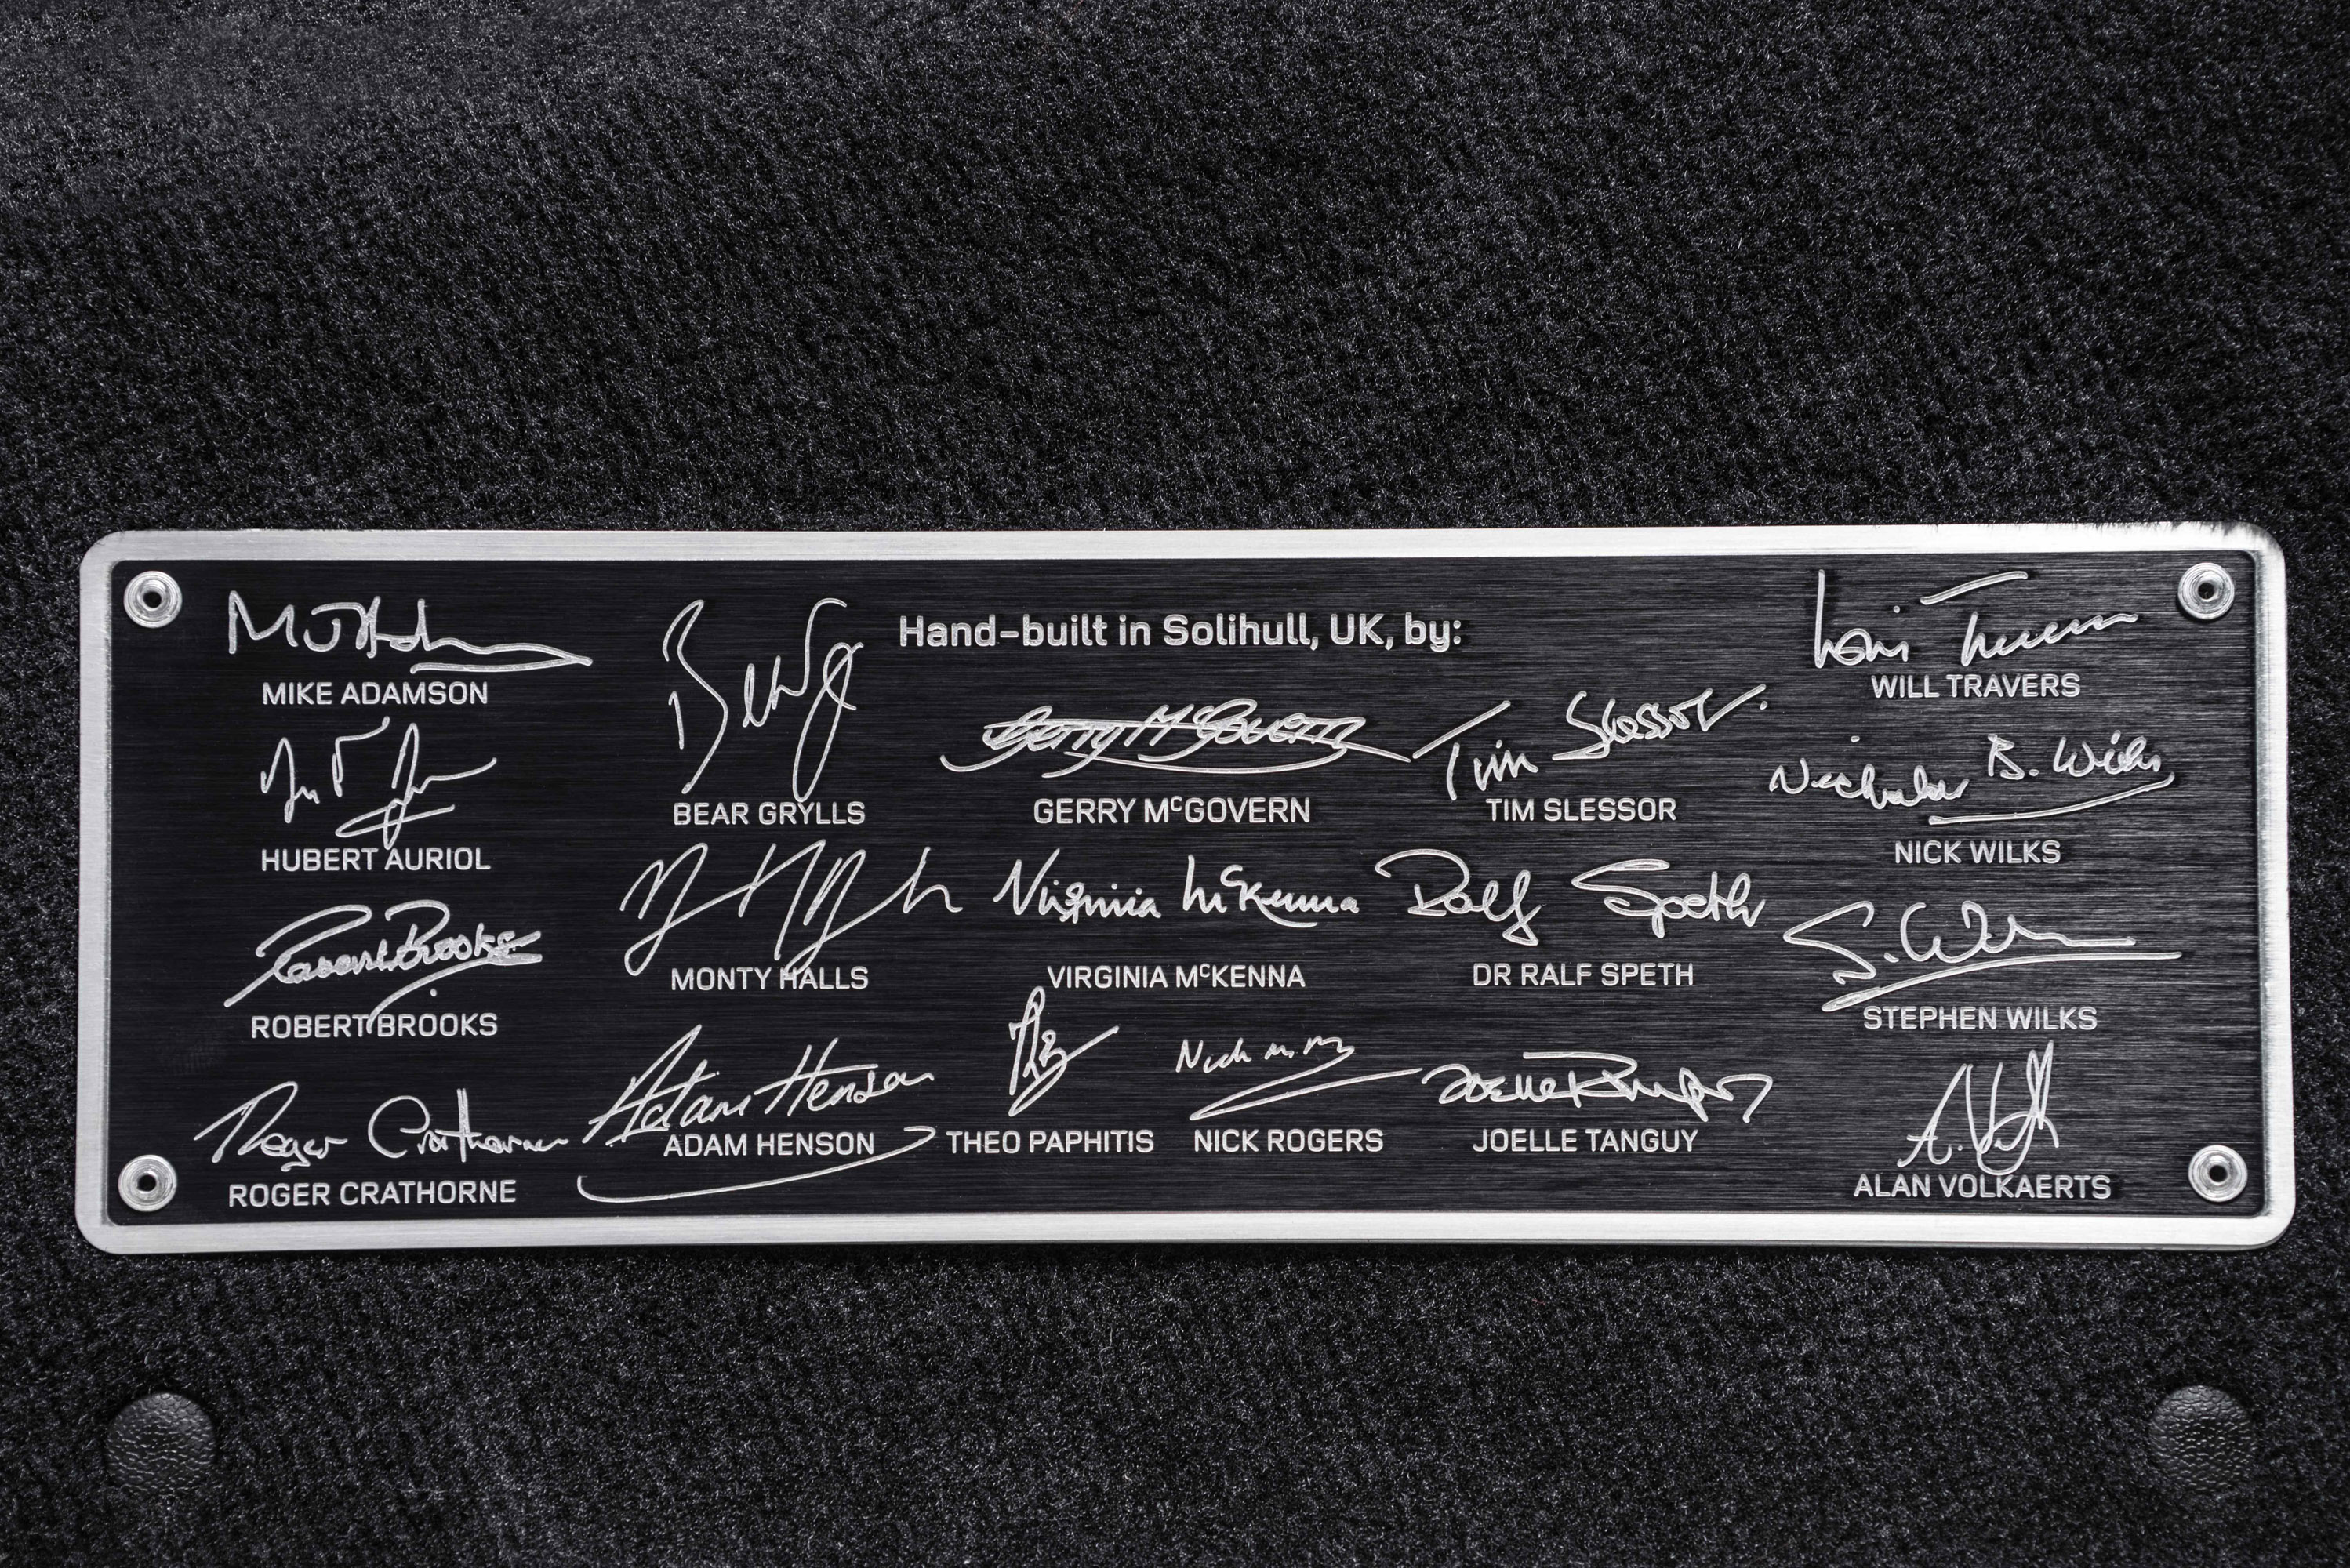 Hand-built in Solihull, UK, by:
MJ Adamson
MIKE ADAMSON
HUBERT AURIOL
Robert Brooks
ROBERT BROOKS
Roger Crathorne
ROGER CRATHORNE
Bear G
BEAR GRYLLS
MONTY HALLS
Adam Henson
ADAM HENSON
Gerry McGovern
GERRY McGOVERN
Virginia McKenna
VIRGINIA McKENNA
THEO PAPHITIS
Nick
NICK ROGERS
Tim Slessor
TIM SLESSOR
Ralf Speth
DR RALF SPETH
Joelle Tanguy
JOELLE TANGUY
Will Travers
WILL TRAVERS
Nicholas B. Wilks
NICK WILKS
S. Wilks
STEPHEN WILKS
A. Volk
ALAN VOLKAERTS